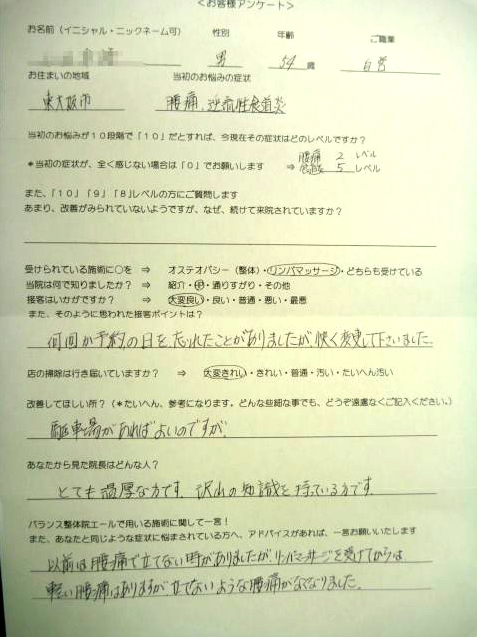 <お客様アンケート>
お名前（イニシャル・ニックネーム可） 性別 年齢 ご職業
男 54 歳 自営
お住まいの地域 当初のお悩みの症状
東大阪市 腰痛、逆流性食道炎
当初のお悩みが１０段階で「１０」だとすれば、今現在その症状はどのレベルですか？
腰痛 2 レベル
*当初の症状が、全く感じない場合は「０」でお願いします ⇒ 5 レベル
また、「１０」「９」「８」レベルの方にご質問します
あまり、改善がみられていないようですが、なぜ、続けて来院されていますか？
受けられている施術に○を ⇒ オステオパシー（整体）・リンパマッサージ・どちらも受けている
当院は何で知りましたか？ ⇒ 紹介・・通りすがり・その他
接客はいかがですか？ ⇒ 大変良い・良い・普通・悪い・最悪
また、そのように思われた接客ポイントは？
何回か予約の日を忘れたことがありましたが、快く変更して下さいました。
店の掃除は行き届いていますか？ ⇒ 大変きれい・きれい・普通・汚い・たいへん汚い
改善してほしい所？（*たいへん、参考になります。どんな些細な事でも、どうぞ遠慮なくご記入ください。）
駐車場があればよいのですが
あなたから見た院長はどんな人？
とても温厚な方です。沢山の知識を持っている方です
バランス整体院エールで用いる施術に関して一言！
また、あなたと同じような症状に悩まされている方へ、アドバイスがあれば、一言お願いいたします
以前は腰痛で立てない時がありましたが、リンパマッサージを受けてからは
軽い腰痛はありますが立てないような腰痛がなくなりました。